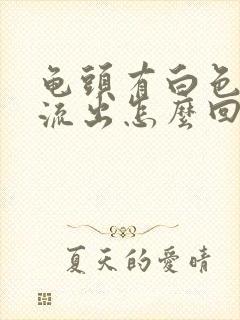 龟頭有白色
流出怎麼回
夏天的愛晴